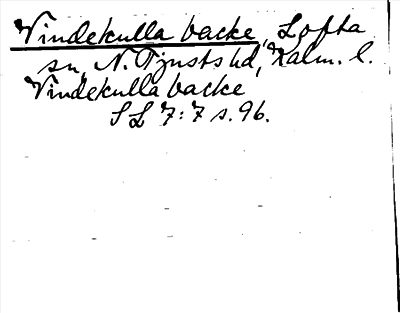 Vindekulla backe, Lofta
sn, N. Tjusts hd, Kalm. l.
Vindekulla backe
SL 7:7 s. 96.